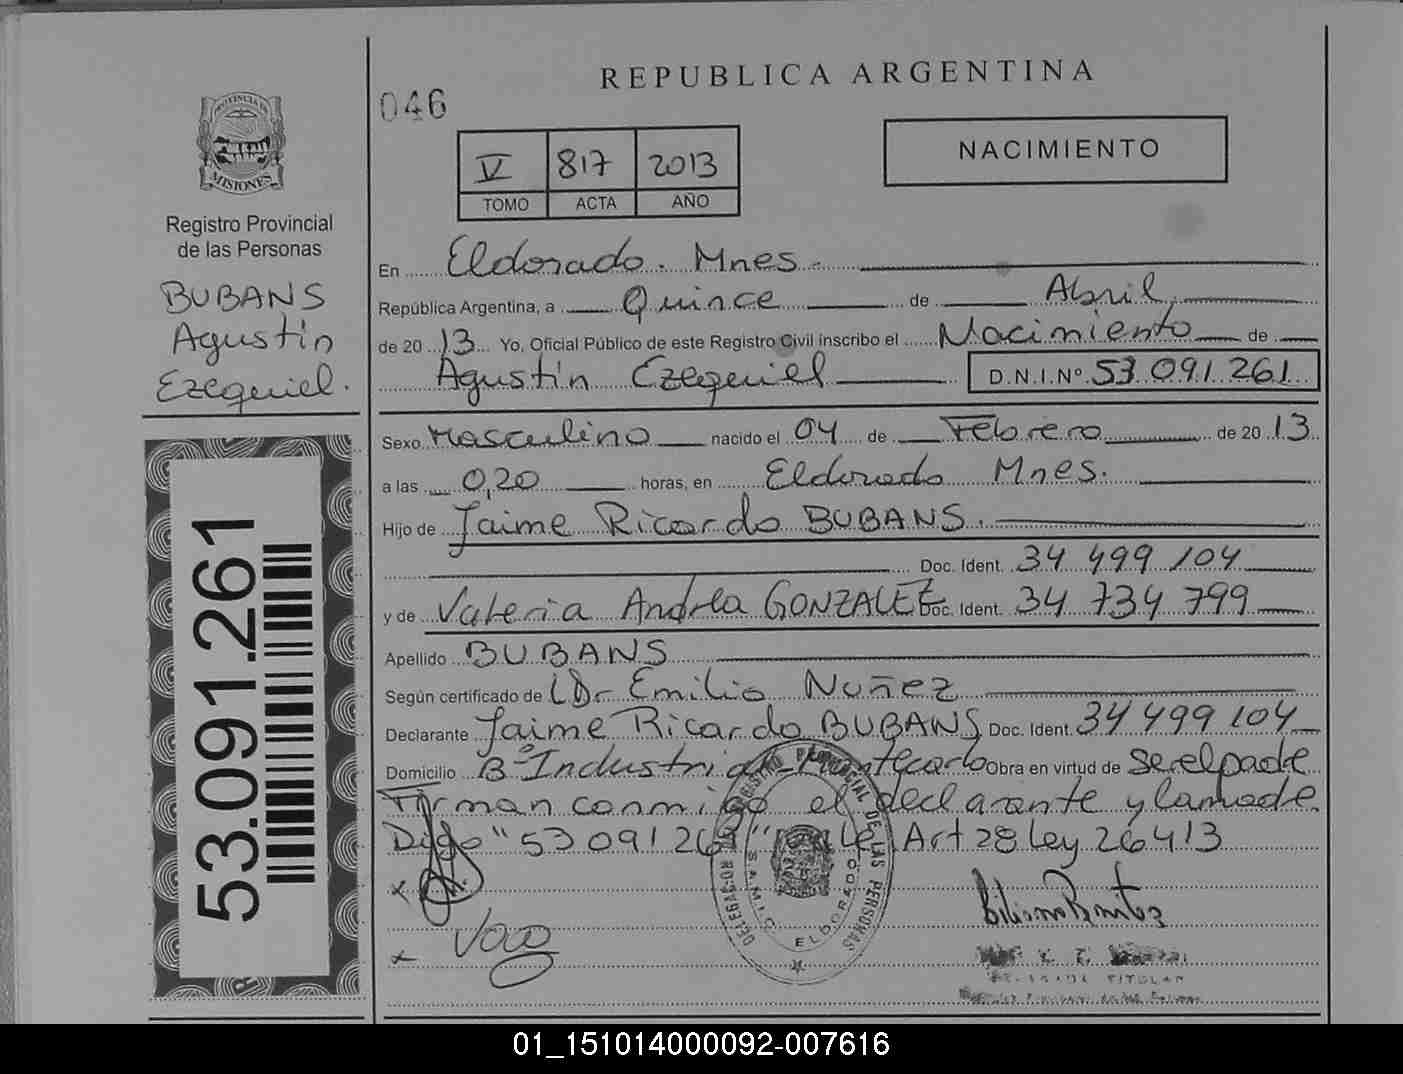 REPUBLICA ARGENTINA
046
PROVINCIA DE
MISIONES
Registro Provincial
de las Personas
BUBANS
Agustín
Ezequiel.
53.091.261
V 817 2013
TOMO ACTA AÑO
NACIMIENTO
En Eldorado. Mnes.
República Argentina, a Quince de Abril
de 2013 Yo, Oficial Público de este Registro Civil inscribo el Nacimiento de
Agustín Ezequiel D.N.I.Nº 53.091.261
Sexo Masculino nacido el 04 de Febrero de 2013
a las 0,20 horas, en Eldorado Mnes.
Hijo de Jaime Ricardo BUBANS.
Doc. Ident. 34 499 104
y de Valeria Andrea GONZALEZ Doc. Ident. 34 734 799
Apellido BUBANS
Según certificado de Dr Emilio Nuñez
Declarante Jaime Ricardo BUBANS Doc. Ident. 34 499 104
Domicilio Bº Industrial Montecarlo Obra en virtud de ser el padre
Firman conmigo el declarante y la madre
Digo "53 091 261" Art 28 Ley 26413
REGISTRO PROVINCIAL DE LAS PERSONAS
S.A.M.I.C.
ELDORADO
TITULAR
01_151014000092-007616